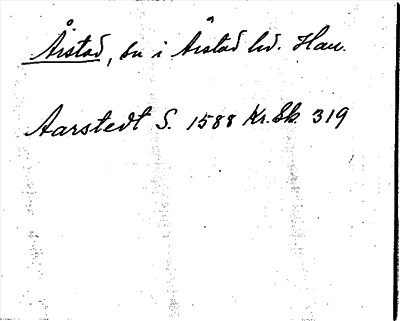 Årstad, sn i Årstad hd. Hall.
Aarstedt S. 1588 Kr.Sk. 319